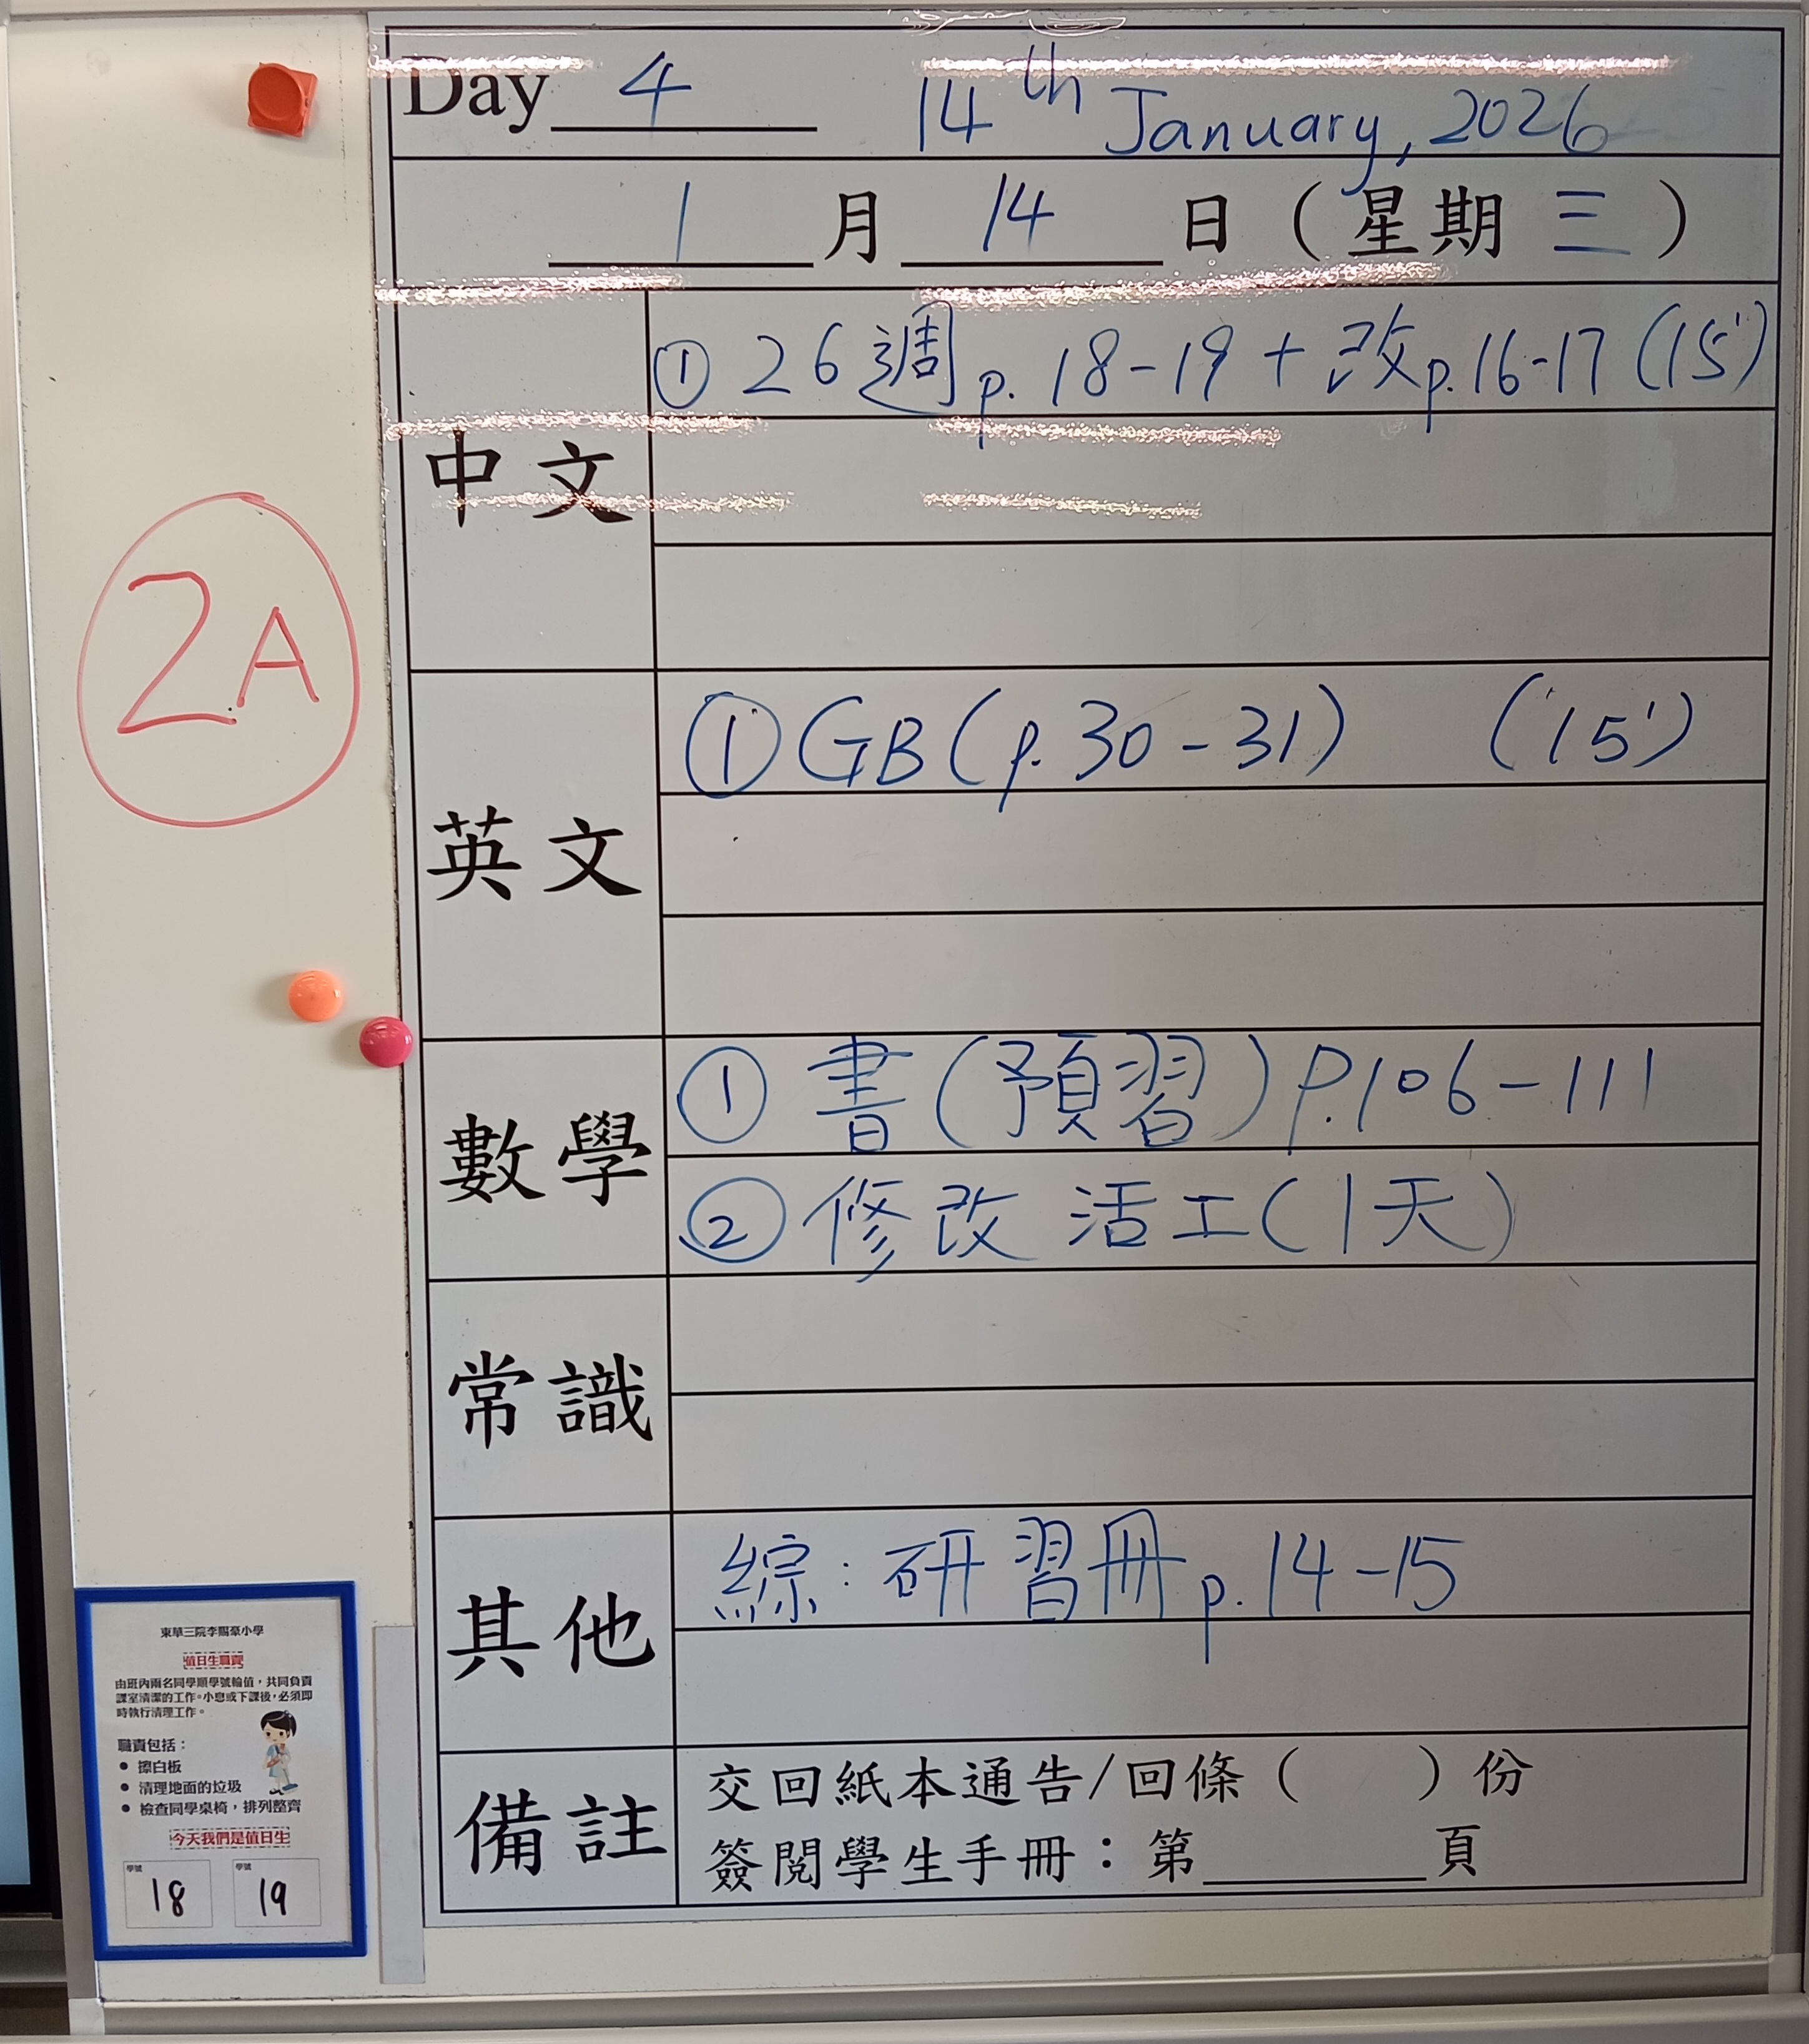 Day 4 14th January, 2026
1 月 14 日 ( 星期 三 )
中文
① 26週 p. 18-19 + 改 p.16-17 (15')
2A
英文
① GB (p. 30-31) (15')
數學
① 書 (預習) P.106-111
② 修改 活工 (1天)
常識
其他
綜: 研習冊 p. 14-15
備註
交回紙本通告/回條 ( ) 份
簽閱學生手冊：第 頁
東華三院李賜豪小學
值日生職責
由班內兩名同學順學號輪值，共同負責
課室清潔的工作。小息或下課後，必須即
時執行清理工作。
職責包括：
• 擦白板
• 清理地面的垃圾
• 檢查同學桌椅，排列整齊
今天我們是值日生
學號 18 學號 19